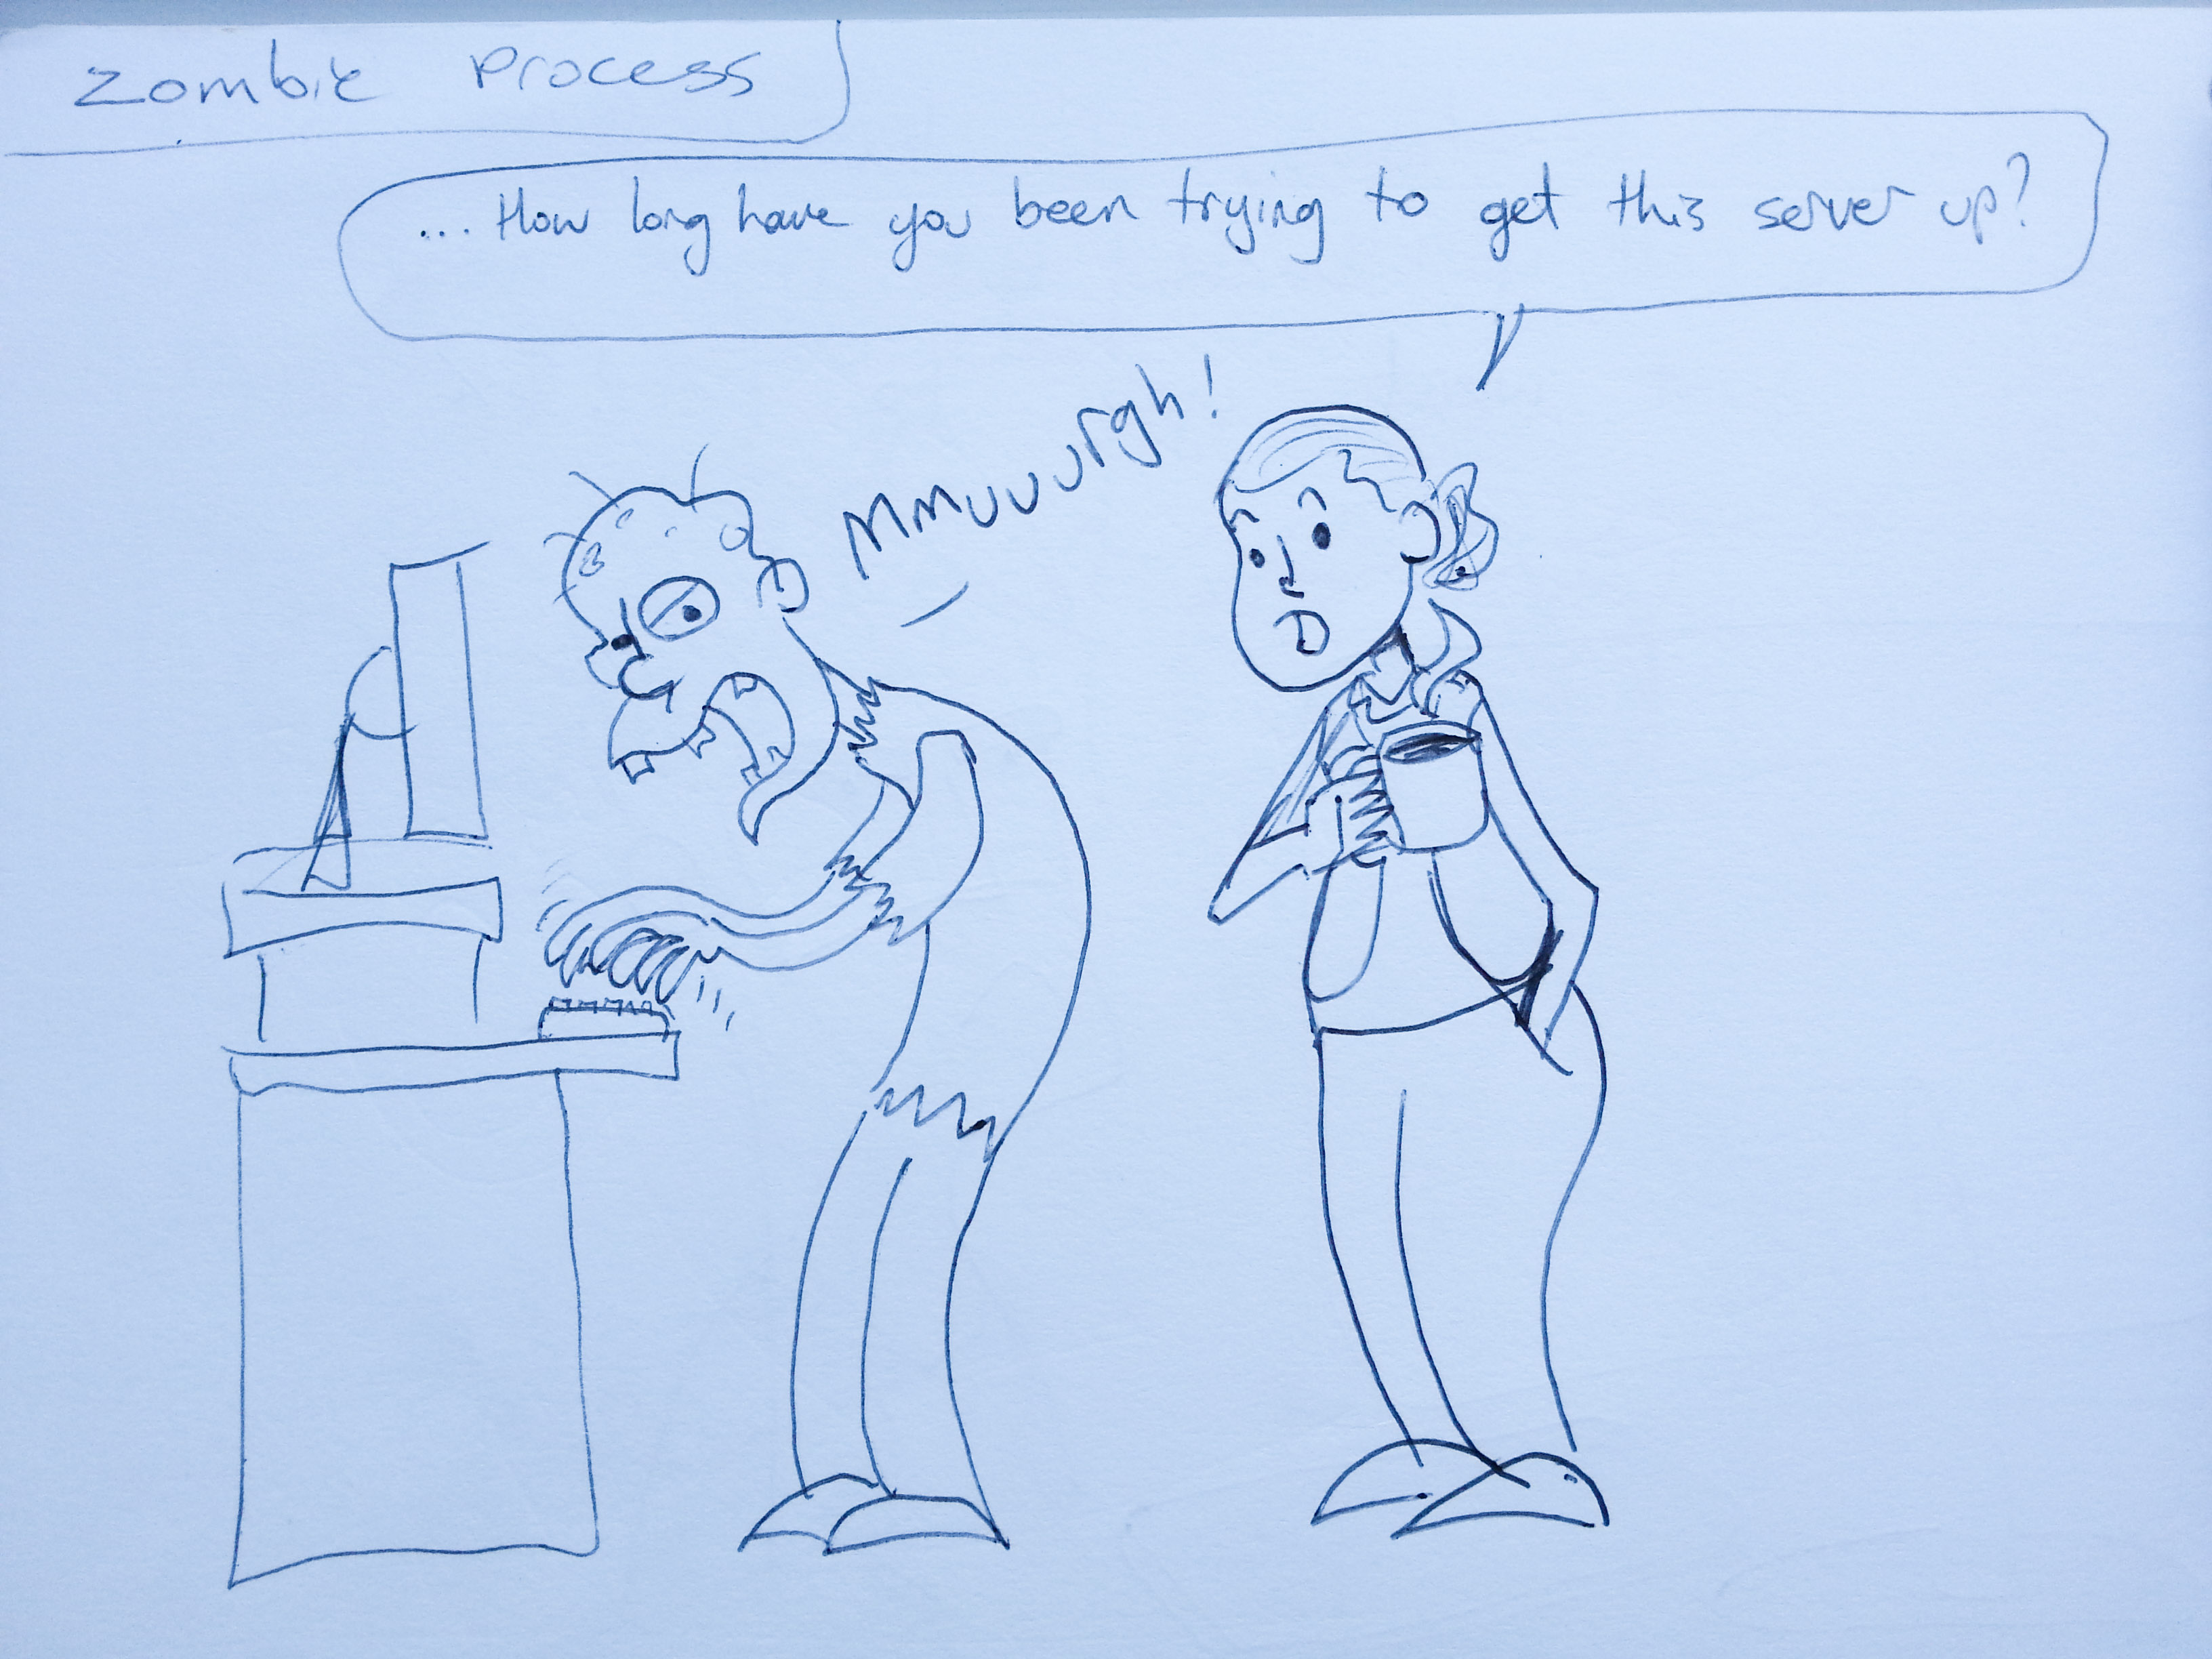 Zombie Process
... How long have you been trying to get this server up?
Mmuuurgh!